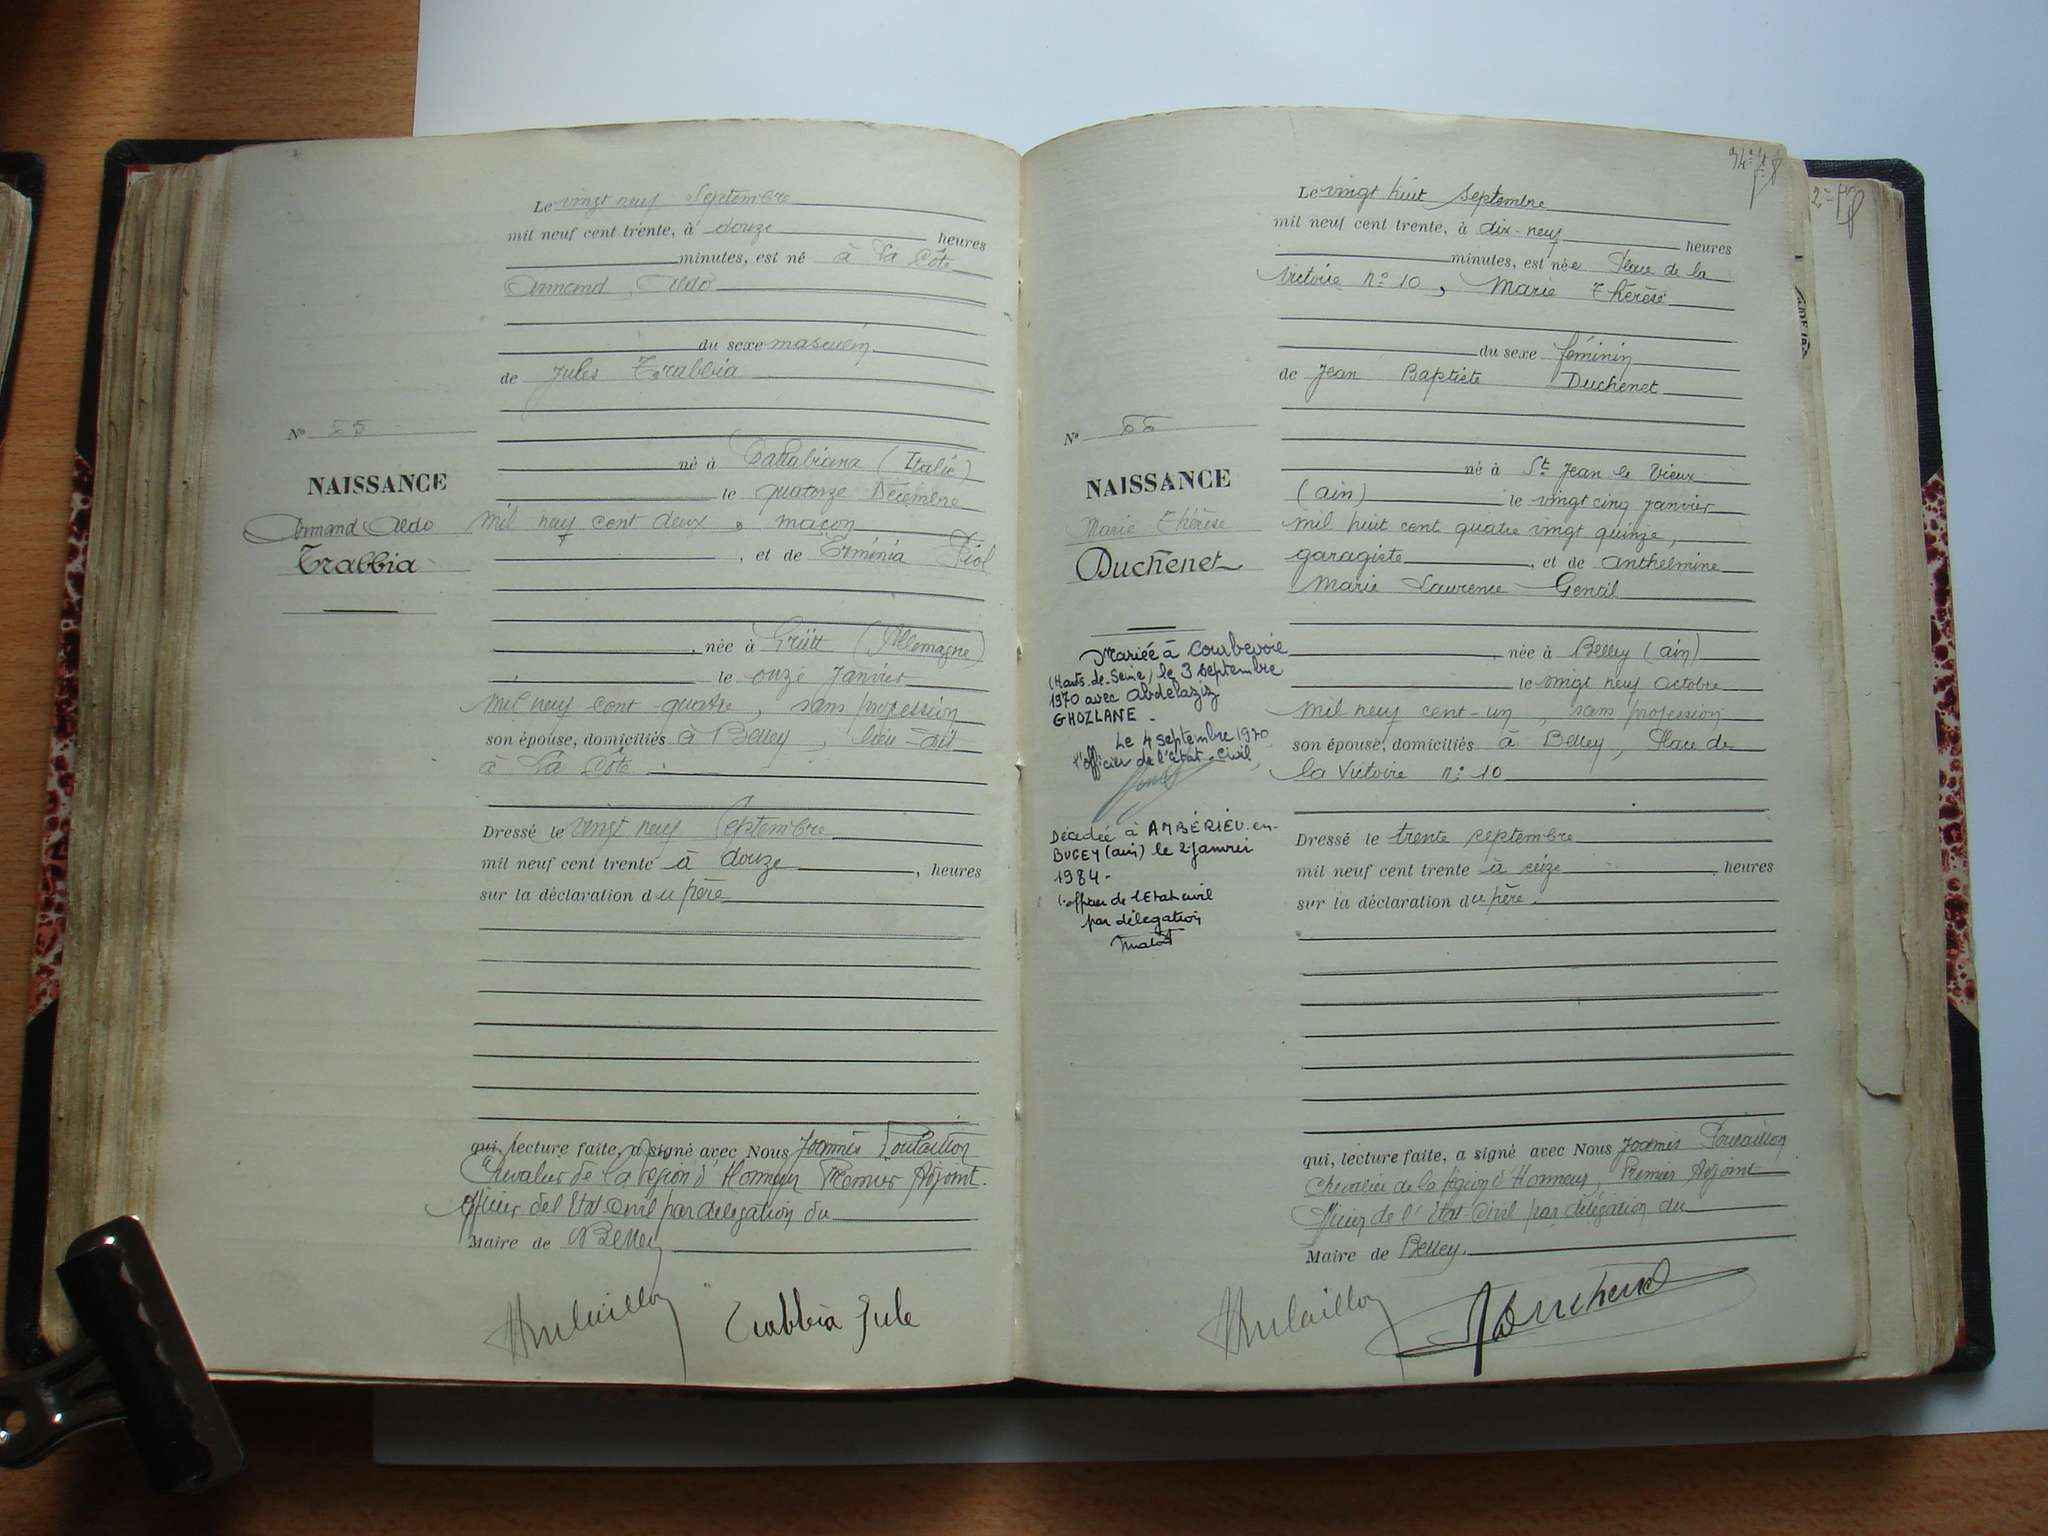 Le vingt neuf Septembre
mil neuf cent trente, à douze heures
minutes, est né à La Côte
Armand, Aldo
du sexe masculin
de Jules Trabbia
né à (Italie)
le quatorze Décembre
mil neuf cent deux, maçon
, et de Erminia Piol
, née à Grütt (Allemagne)
le onze Janvier
mil neuf cent quatre, sans profession
son épouse, domiciliés à Belley, lieu-dit
à La Côte.
Dressé le vingt neuf Septembre
mil neuf cent trente à douze , heures
sur la déclaration du père
qui, lecture faite, a signé avec Nous Joannès Poulaillon
Chevalier de la Légion d'Honneur Premier Adjoint.
Officier de l'Etat Civil par délégation du
Maire de Belley
Trabbia Jule
N°
NAISSANCE
Armand Aldo
Trabbia
Le vingt huit septembre
mil neuf cent trente, à dix-neuf heures
minutes, est née Place de la
Victoire n° 10, Marie Thérèse
du sexe féminin
de Jean Baptiste Duchenet
né à St Jean le Vieux
(ain) le vingt cinq janvier
mil huit cent quatre vingt quinze,
garagiste , et de anthelmine
Marie Laurence Gentil
, née à Belley (ain)
le vingt neuf octobre
mil neuf cent-un, sans profession
son épouse, domiciliés à Belley, Place de
la Victoire n° 10
Dressé le trente septembre
mil neuf cent trente à seize , heures
sur la déclaration du père.
qui, lecture faite, a signé avec Nous Joannès Poulaillon
Chevalier de la Légion d'Honneur, Premier Adjoint
Officier de l'Etat-Civil par délégation du
Maire de Belley.
N°
NAISSANCE
Marie Thérèse
Duchenet
Mariée à Courbevoie
(Hauts-de-Seine) le 3 septembre
1970 avec Abdelaziz
GHOZLANE.
Le 4 septembre 1970
l'officier de l'état-civil,
Décédée à AMBÉRIEU-en-
BUGEY (ain) le 2 janvier
1984-
l'officier de l'Etat civil
par délégation